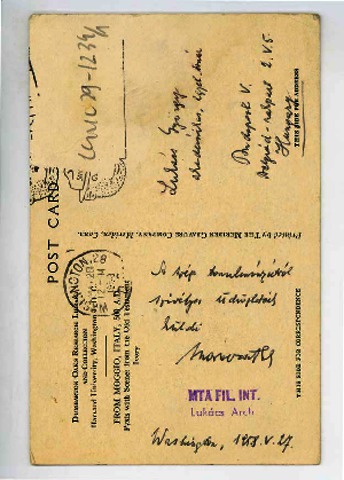 POST CARD
DUMBARTON OAKS RESEARCH LIBRARY
AND COLLECTION
Harvard University, Washington
FROM MOGGIO, ITALY, 500 A.D.
Pyxis with Scenes from the Old Testament
Ivory
Printed by THE MERIDEN GRAVURE COMPANY, Meriden, Conn.
Lukács György
akadémikus, egyt. tanár
Budapest V.
Belgrád-rakpart 2. V. 5
Hungary
THIS SIDE FOR ADDRESS
A szép
szívélyes üdvözletét
küldi
MTA FIL. INT.
Lukács Arch
Washington, 1958. V. 27.
THIS SIDE FOR CORRESPONDENCE